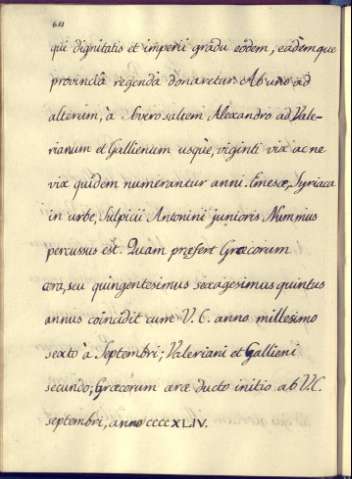 60
qui dignitatis et imperii gradu eodem, eâdemque
provinciâ regendâ donaretur. Ab uno ad
alterum, à Severo saltem Alexandro ad Vale-
rianum et Gallienum usque, viginti vix ac ne
vix quidem numerantur anni. Emesæ, Syriaca
in urbe, Sulpicii Antonini junioris Nummus
percussus est. Quam præfert Græcorum
æra, seu quingentesimus sexagesimus quintus
annus coincidit cum V. C. anno millesimo
sexto à Septembri; Valeriani et Gallieni
secundo; Græcorum æræ ducto initio ab V.C.
septembri, anno CCCCXLIV.